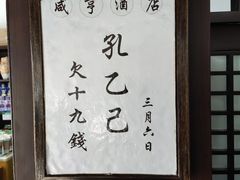 咸亨酒店
三月六日
孔乙己
欠十九錢